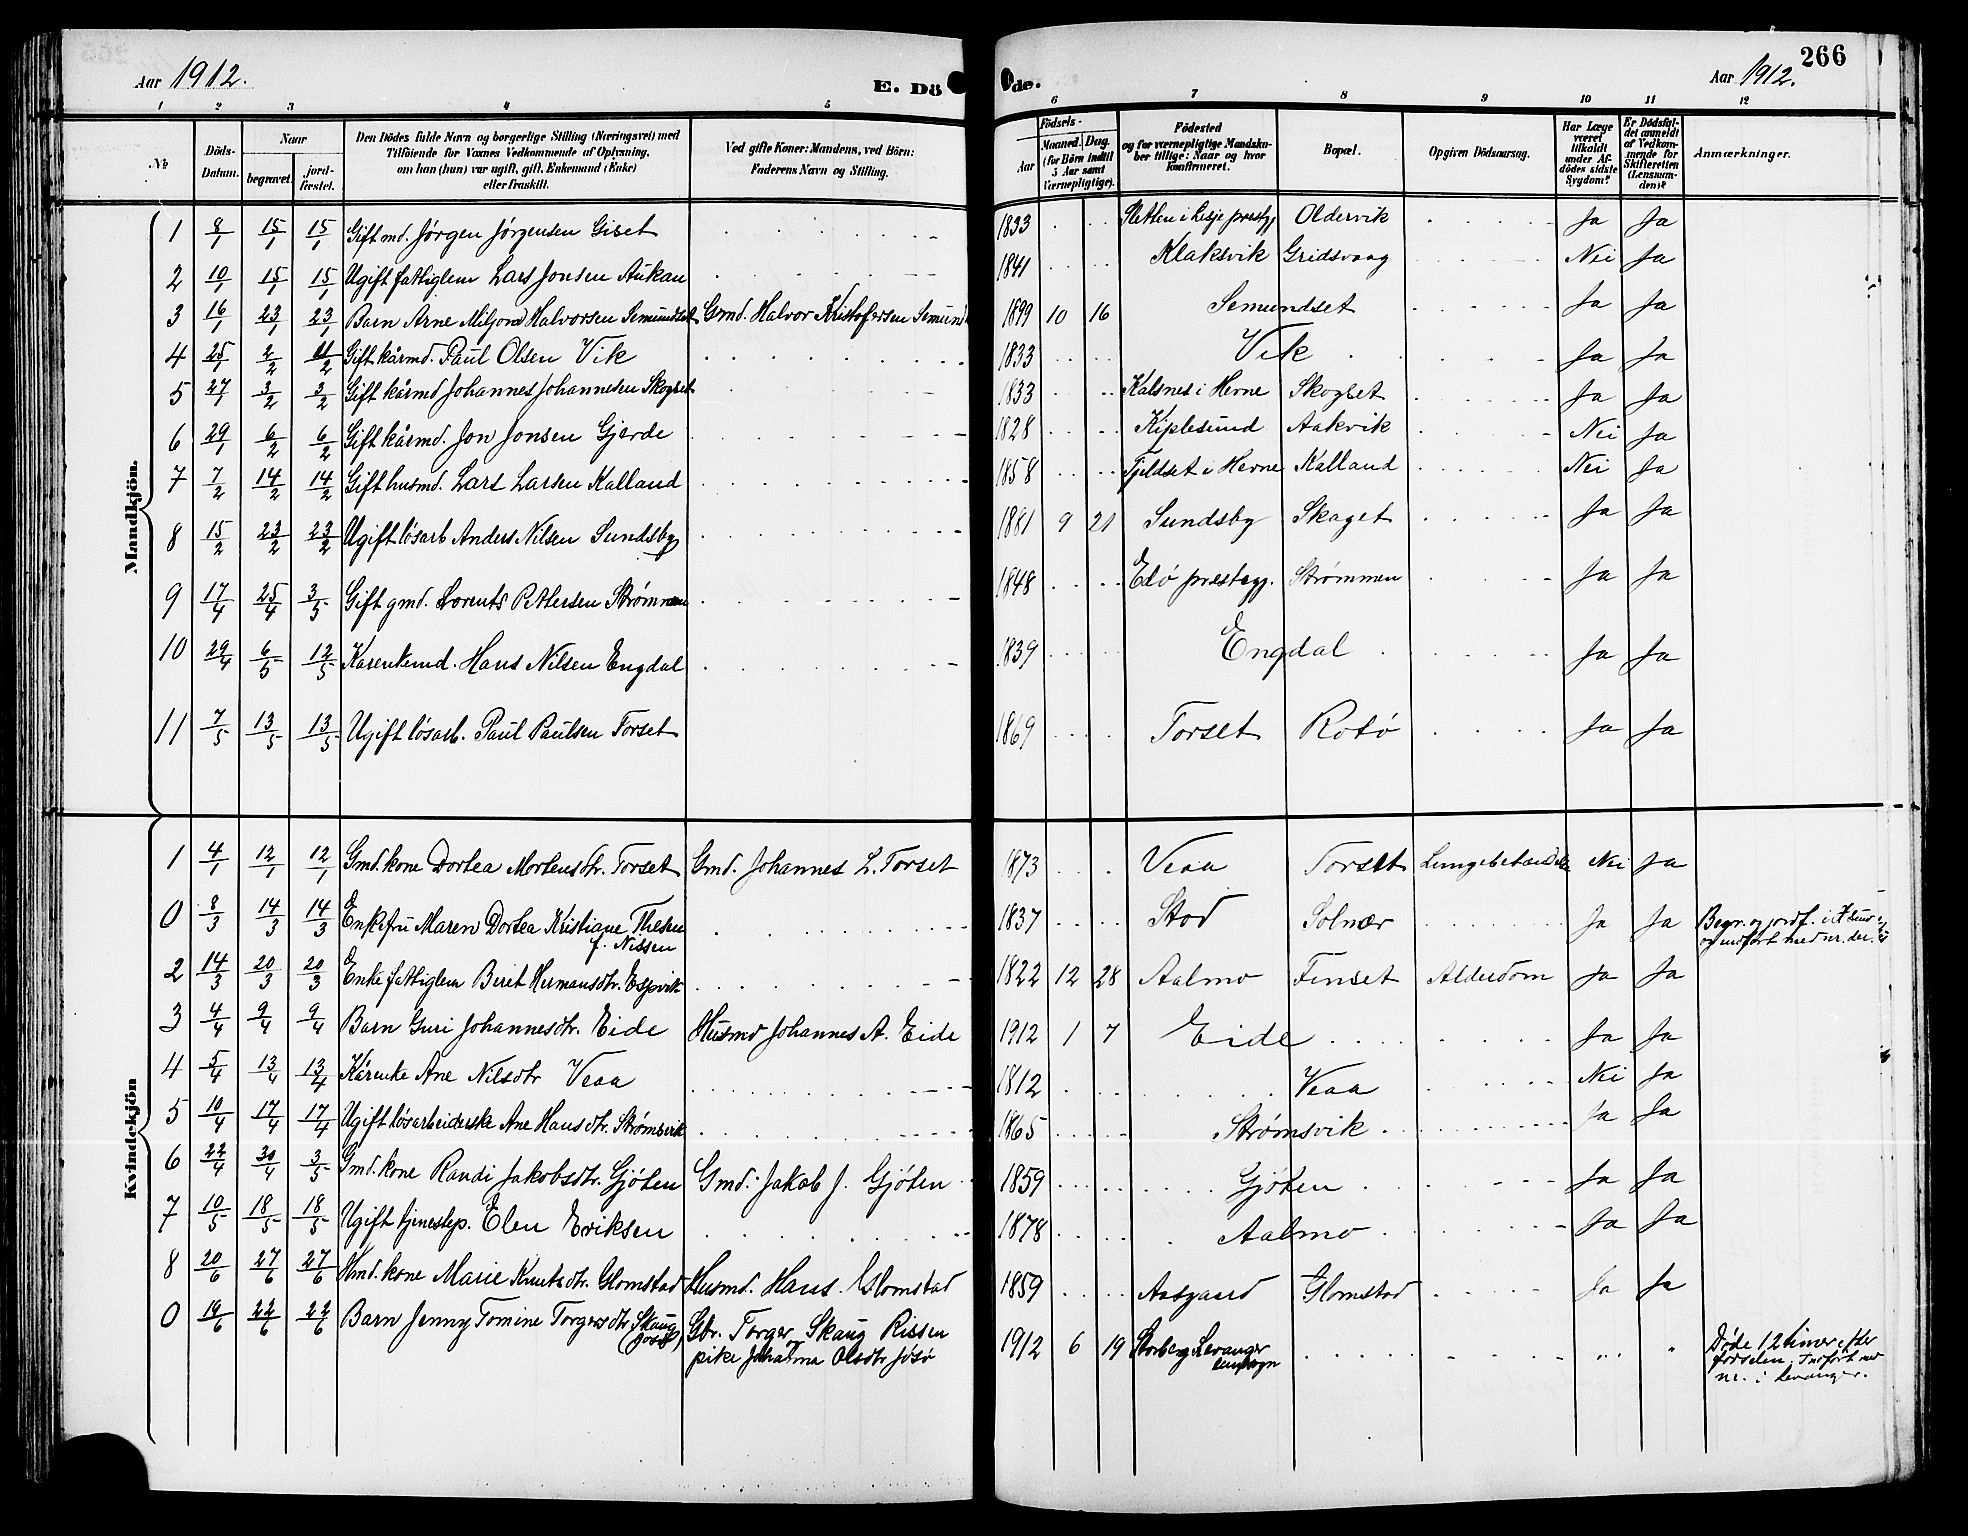 Aar 1912.
E. Dö de.
Aar 1912.
266
1 2 3 4 5 6 7 8 9 10 11 12
No
Döds-Datum.
Naar
begravet.
jord-fæstet.
Den Dödes fulde Navn og borgerlige Stilling (Næringsvei) med
Tilföiende for Voxnes Vedkommende af Oplysning,
om han (hun) var ugift, gift, Enkemand (Enke)
eller fraskilt.
Ved gifte Koner: Mandens, ved Börn:
Faderens Navn og Stilling.
Födsels-
Aar
Maaned. Dag.
(for Börn indtil
5 Aar samt
Værnepligtige).
Födested
og for værnepligtige Mandska-
ber tillige: Naar og hvor
konfirmeret.
Bopæl.
Opgiven Dödsaarsag.
Har Læge
været
tilkaldt
under Af-
dödes sidste
Sygdom?
Er Dödsfal-
det anmeldt
af Vedkom-
mende for
Skifteretten
(Lensman-
den)?
Anmærkninger.
Mandkjön.
1 8/1 15/1 15/1 Gift md. Jørgen Jørgensen Giset 1833 Sletten i Lesje prestgj Oldervik Ja Ja
2 10/1 15/1 15/1 Ugift fattiglem Lars Jonsen Aukan 1841 Klaksvik Gridsvaag Nei Ja
3 16/1 23/1 23/1 Barn Arne Miljona Halvorsen Semundset Gmd. Halvor Kristofersen Semund 1899 10 16 Semundset Ja Ja
4 25/1 2/2 /2 Gift kårmd. Paul Olsen Vik 1833 Vik Ja Ja
5 27/1 3/2 3/2 Gift kårmd Johannes Johannesen Skogset 1833 Kalsnes i Hevne Skogset Ja Ja
6 29/1 6/2 6/2 Gift kårmd. Jon Jonsen Gjerde 1828 Kiplesund Aakvik Nei Ja
7 7/2 14/2 14/2 Gift husmd. Lars Larsen Kalland 1858 Fjeldset i Hevne Kalland Nei Ja
8 15/2 23/2 23/2 Ugift løsarb Anders Nilsen Sundsby 1881 9 21 Sundsby Skaget Ja Ja
9 17/4 25/4 3/5 Gift gmd. Lorents Petersen Strømmen 1848 Edø prestegj. Strømmen Ja Ja
10 29/4 6/5 12/5 Kårenkemd. Hans Nilsen Engdal 1839 Engdal Ja Ja
11 7/5 13/5 13/5 Ugift løsarb. Paul Paulsen Torset 1869 Torset Rotø Ja Ja
Kvindekjön
1 4/1 12/1 12/1 Gmd. kone Dortea Mortensdtr. Torset Gmd. Johannes L. Torset 1873 Veaa Torset Lungebetændelse Nei Ja
0 8/3 14/3 14/3 Enkefru Maren Dortea Kristiane Thesen
f. Nissen 1837 Stod Solnær Ja Ja Begr. og jordf. i
og indført med nr. der.
2 14/3 20/3 20/3 Enke fattiglem Berit Hermansdtr. Espvik 1822 12 28 Aalmo Finset Alderdom Ja Ja
3 4/4 9/4 9/4 Barn Guri Johannesdtr. Eide Husmd Johannes A. Eide 1912 1 7 Eide Ja Ja
4 5/4 13/4 13/4 Kårenke Ane Nilsdtr Veaa 1812 Veaa Nei Ja
5 10/4 17/4 17/4 Ugift løsarbeiderske Ane Hansdtr. Strømsvik 1865 Strømsvik Ja Ja
6 22/4 30/4 3/5 Gmd. kone Randi Jakobsdtr. Gjøten Gmd. Jakob J. Gjøten 1859 Gjøten Ja Ja
7 10/5 18/5 18/5 Ugift tjenestep. Elen Eriksen 1878 Aalmo Ja Ja
8 20/6 27/6 27/6 Hmd. kone Marie Knutsdtr. Glomstad Husmd. Hans Glomstad 1859 Aasgaard Glomstad Ja Ja
0 19/6 22/6 22/6 Barn Jenny Tomine Torgersdtr. Skaug Gbr. Torger Skaug Rissen
pike Johanna Olsdtr Jøsø 1912 6 19 Storberg Levanger
landsogn Døde 12 timer efter
fødselen. Indført med
nr. i Levanger.